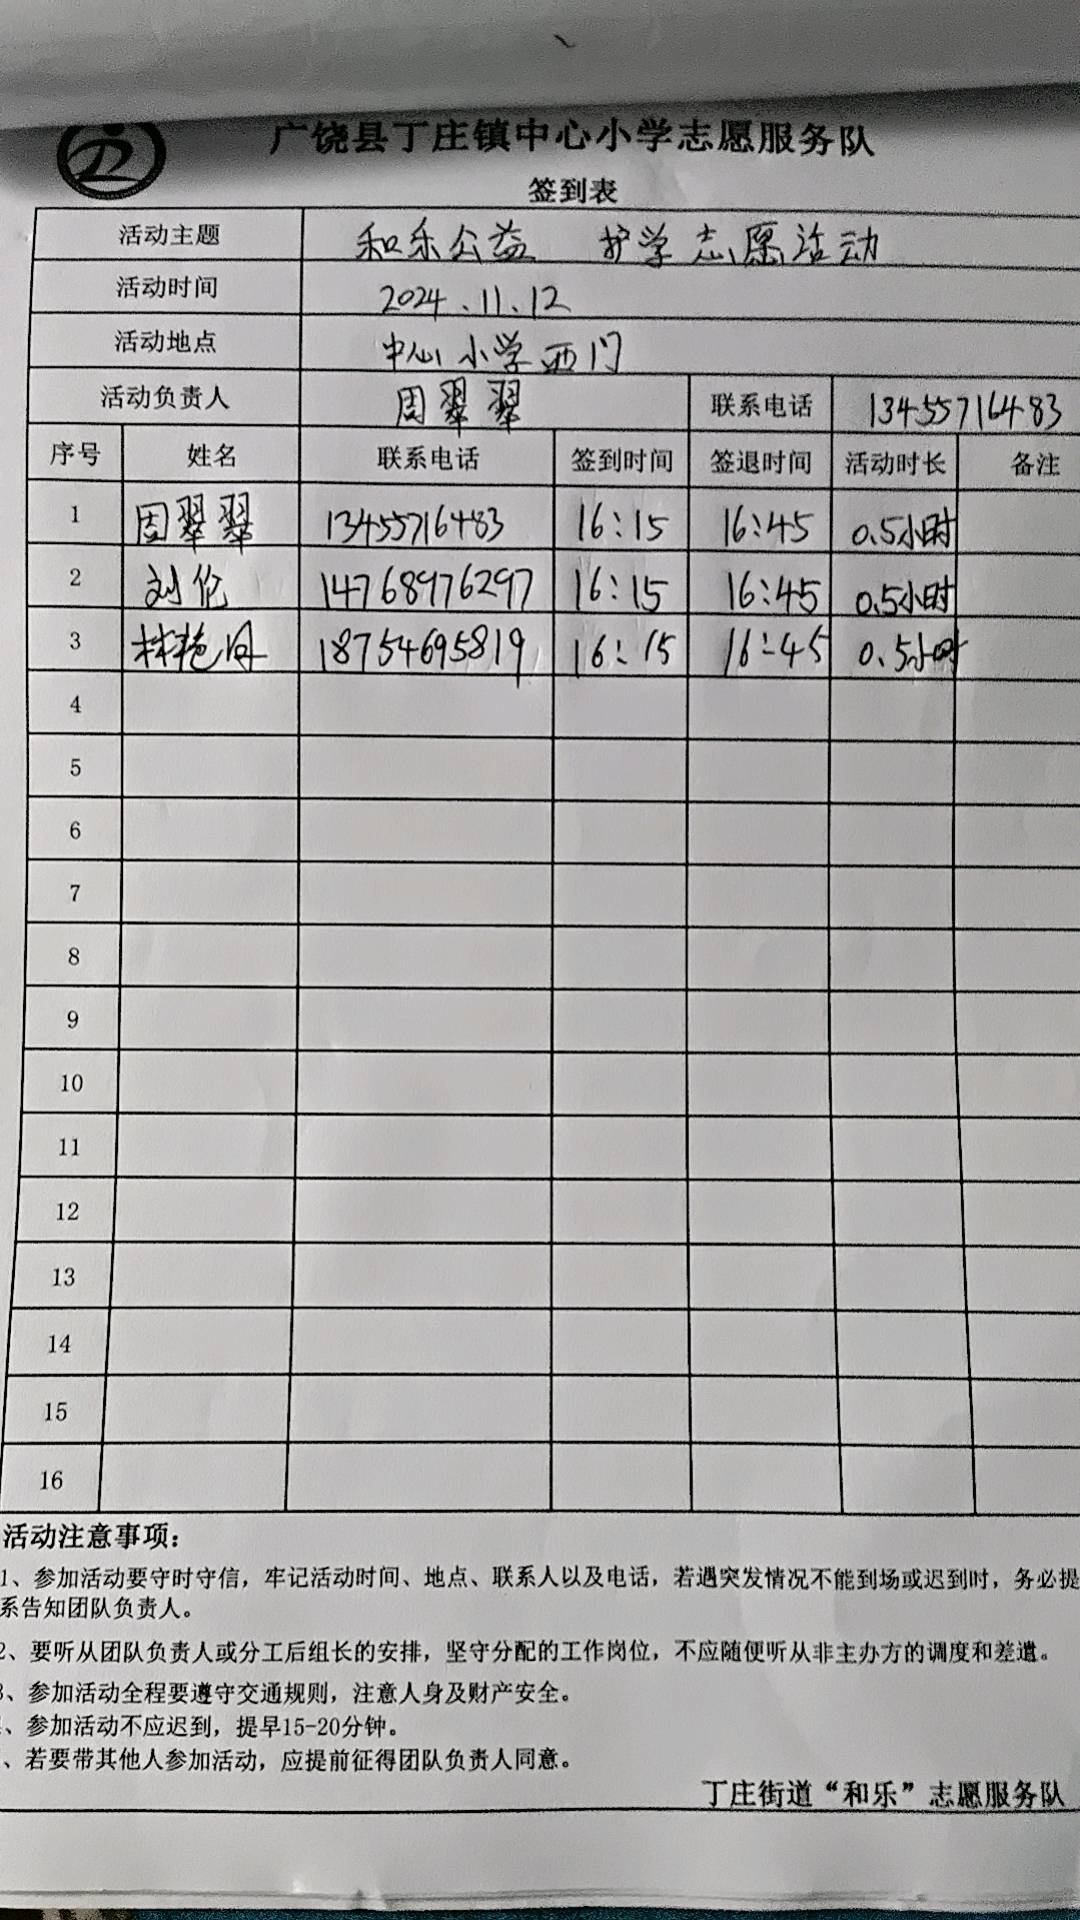 广饶县丁庄镇中心小学志愿服务队
签到表
活动主题 和乐公益 护学志愿活动
活动时间 2024.11.12
活动地点 中心小学西门
活动负责人 周翠翠 联系电话 13455716483
序号 姓名 联系电话 签到时间 签退时间 活动时长 备注
1 周翠翠 13455716483 16:15 16:45 0.5小时
2 刘伦 14768976297 16:15 16:45 0.5小时
3 林艳丹 18754695819 16:15 16:45 0.5小时
4
5
6
7
8
9
10
11
12
13
14
15
16
活动注意事项：
1、参加活动要守时守信，牢记活动时间、地点、联系人以及电话，若遇突发情况不能到场或迟到时，务必提
系告知团队负责人。
2、要听从团队负责人或分工后组长的安排，坚守分配的工作岗位，不应随便听从非主办方的调度和差遣。
3、参加活动全程要遵守交通规则，注意人身及财产安全。
、参加活动不应迟到，提早15-20分钟。
、若要带其他人参加活动，应提前征得团队负责人同意。
丁庄街道“和乐”志愿服务队